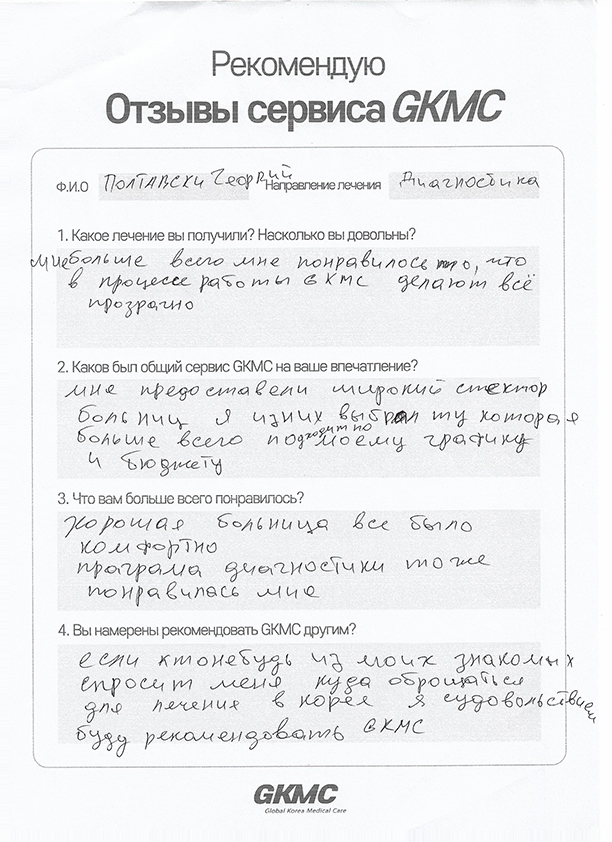 Рекомендую
Отзывы сервиса GKMC
Ф.И.О Полтавски Георгий Направление лечения Диагностика
1. Какое лечение вы получили? Насколько вы довольны?
мне больше всего мне понравилось то, что
в процессе работы GKMC делают всё
прозрачно
2. Каков был общий сервис GKMC на ваше впечатление?
мне предоставели широкий спектор
больниц я из них выбрал ту которая
больше всего подходит по моему графику
и бюджету
3. Что вам больше всего понравилось?
хорошая больница все было
комфортно
праграма диагностики тоже
понравилась мне
4. Вы намерены рекомендовать GKMC другим?
если ктонебудь из моих знакомых
спросит меня куда оброщаться
для лечение в корея я судовольствием
буду рекомендовать GKMC
GKMC
Global Korea Medical Care